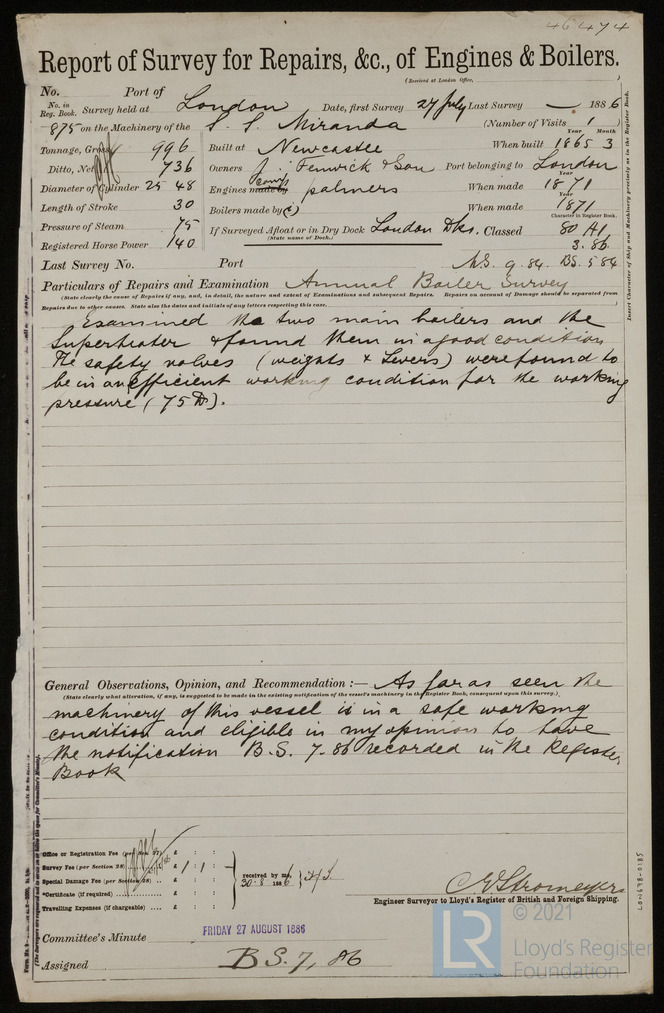 46474
Report of Survey for Repairs, &c., of Engines & Boilers.
(Received at London Office,
No. Port of
No. in Reg. Book. Survey held at London Date, first Survey 27 July Last Survey — 1886
875 on the Machinery of the S. S. Miranda (Number of Visits 1 )
Year Month
Tonnage, Gross 996 Built at Newcastle When built 1865 3
Ditto, Net 736 Owners J. Fenwick & Son Port belonging to London
Year
Diameter of Cylinder 25 48 Engines made by Palmers When made 1871
Year
Length of Stroke 30 Boilers made by When made 1871
Character in Register Book.
Pressure of Steam 75 If Surveyed Afloat or in Dry Dock London Dks. Classed 80 A1
(State name of Dock.)
Registered Horse Power 140 3.86
Last Survey No. Port M.S. 9.84. B.S. 5 84
Particulars of Repairs and Examination Annual Boiler Survey
(State clearly the cause of Repairs if any, and, in detail, the nature and extent of Examinations and subsequent Repairs. Repairs on account of Damage should be separated from
Repairs due to other causes. State also the dates and initials of any letters respecting this case.
Examined the two main boilers and the
Superheater & found them in a good condition
The safety valves (weights & Levers) were found to
be in an efficient working condition for the working
pressure (75 lb).
Insert Character of Ship and Machinery precisely as in the Register Book.
General Observations, Opinion, and Recommendation :— As far as seen the
(State clearly what alteration, if any, is suggested to be made in the existing notification of the vessel's machinery in the Register Book, consequent upon this survey.)
machinery of this vessel is in a safe working
condition and eligible in my opinion to have
the notification B.S. 7-86 recorded in the Register
Book
Office or Registration Fee £ : :
Survey Fee (per Section 28) £ 1 : 1 :
Special Damage Fee (per Section 28) .. £ : :
*Certificate (if required) £ : :
Travelling Expenses (if chargeable) .... £ : :
received by me,
30.8 1886
C E Stromeyer
Engineer Surveyor to Lloyd's Register of British and Foreign Shipping.
Committee's Minute FRIDAY 27 AUGUST 1886
Assigned B S. 7, 86
LON698-0185
LR © 2021
Lloyd's Register
Foundation